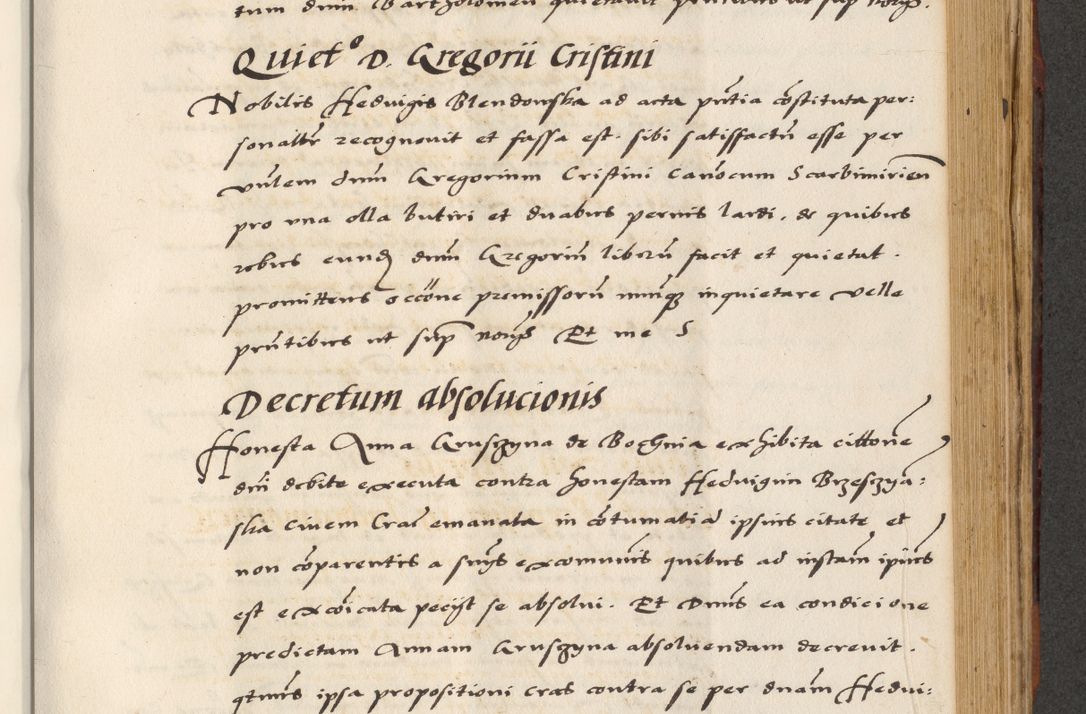 tum dnm Bartholomeu quietavit prntibus ut sup
Quiet° D. Gregorii Cristini
Nobilis Hedvigis Blendowska ad acta pntia cõstituta per:
sonalitr recognovit et fassa est sibi satisfactũ esse per
vñlem dnm Gregorium Cristini canõcum Scarbimirien
pro una olla butiri et duabus pernis lardi. de quibus
rebus eund dnm Gregoriũ liberũ facit et quietat.
promittens occõne premissorũ nunqz inquietare velle
prntibus ut sup Et me S
Decretum absolucionis
Honesta Anna Gruszyna de Boghnia exhibita cittõne
dni debite executa contra honestam Hedvigim Brzesczya:
ska civem Crac emanata in cõtumatia ipsius citate et
non cõparentis a suis excomunis quibus ad instam ipius
est excõicata peciit se absolvi. Et Dnus ea condicione
predictam Annam Gruszyna absolvendam decrevit.
qtnus ipsa propositioni cras contra se per dnam Hedvi: